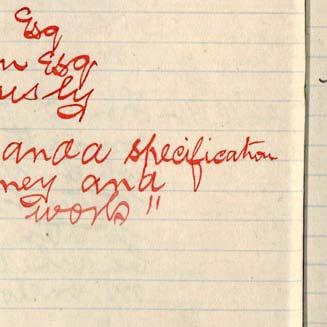 Esq
n Esq
usly
and a specification
ney and
works"